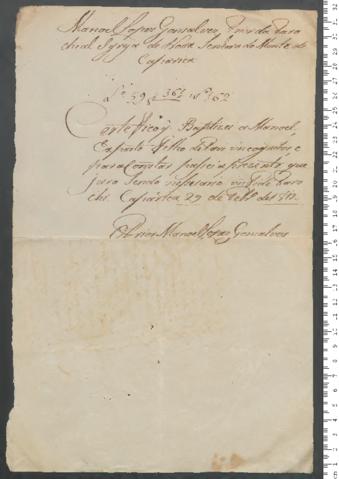 Manoel Lopes Gonsalves, Prior da Paro
chial Igreja de Nossa Senhora do Monte de
Caparica
a fs 59 e 367 e fs 162
Certefico q Baptizei a Manoel,
Exposto filho de Pais incognitos, e
para constar passei a presente, que
juro sendo nesesario in fide Paro
chi. Caparica 29 de de
O Prior Manoel Lopes Gonsalves